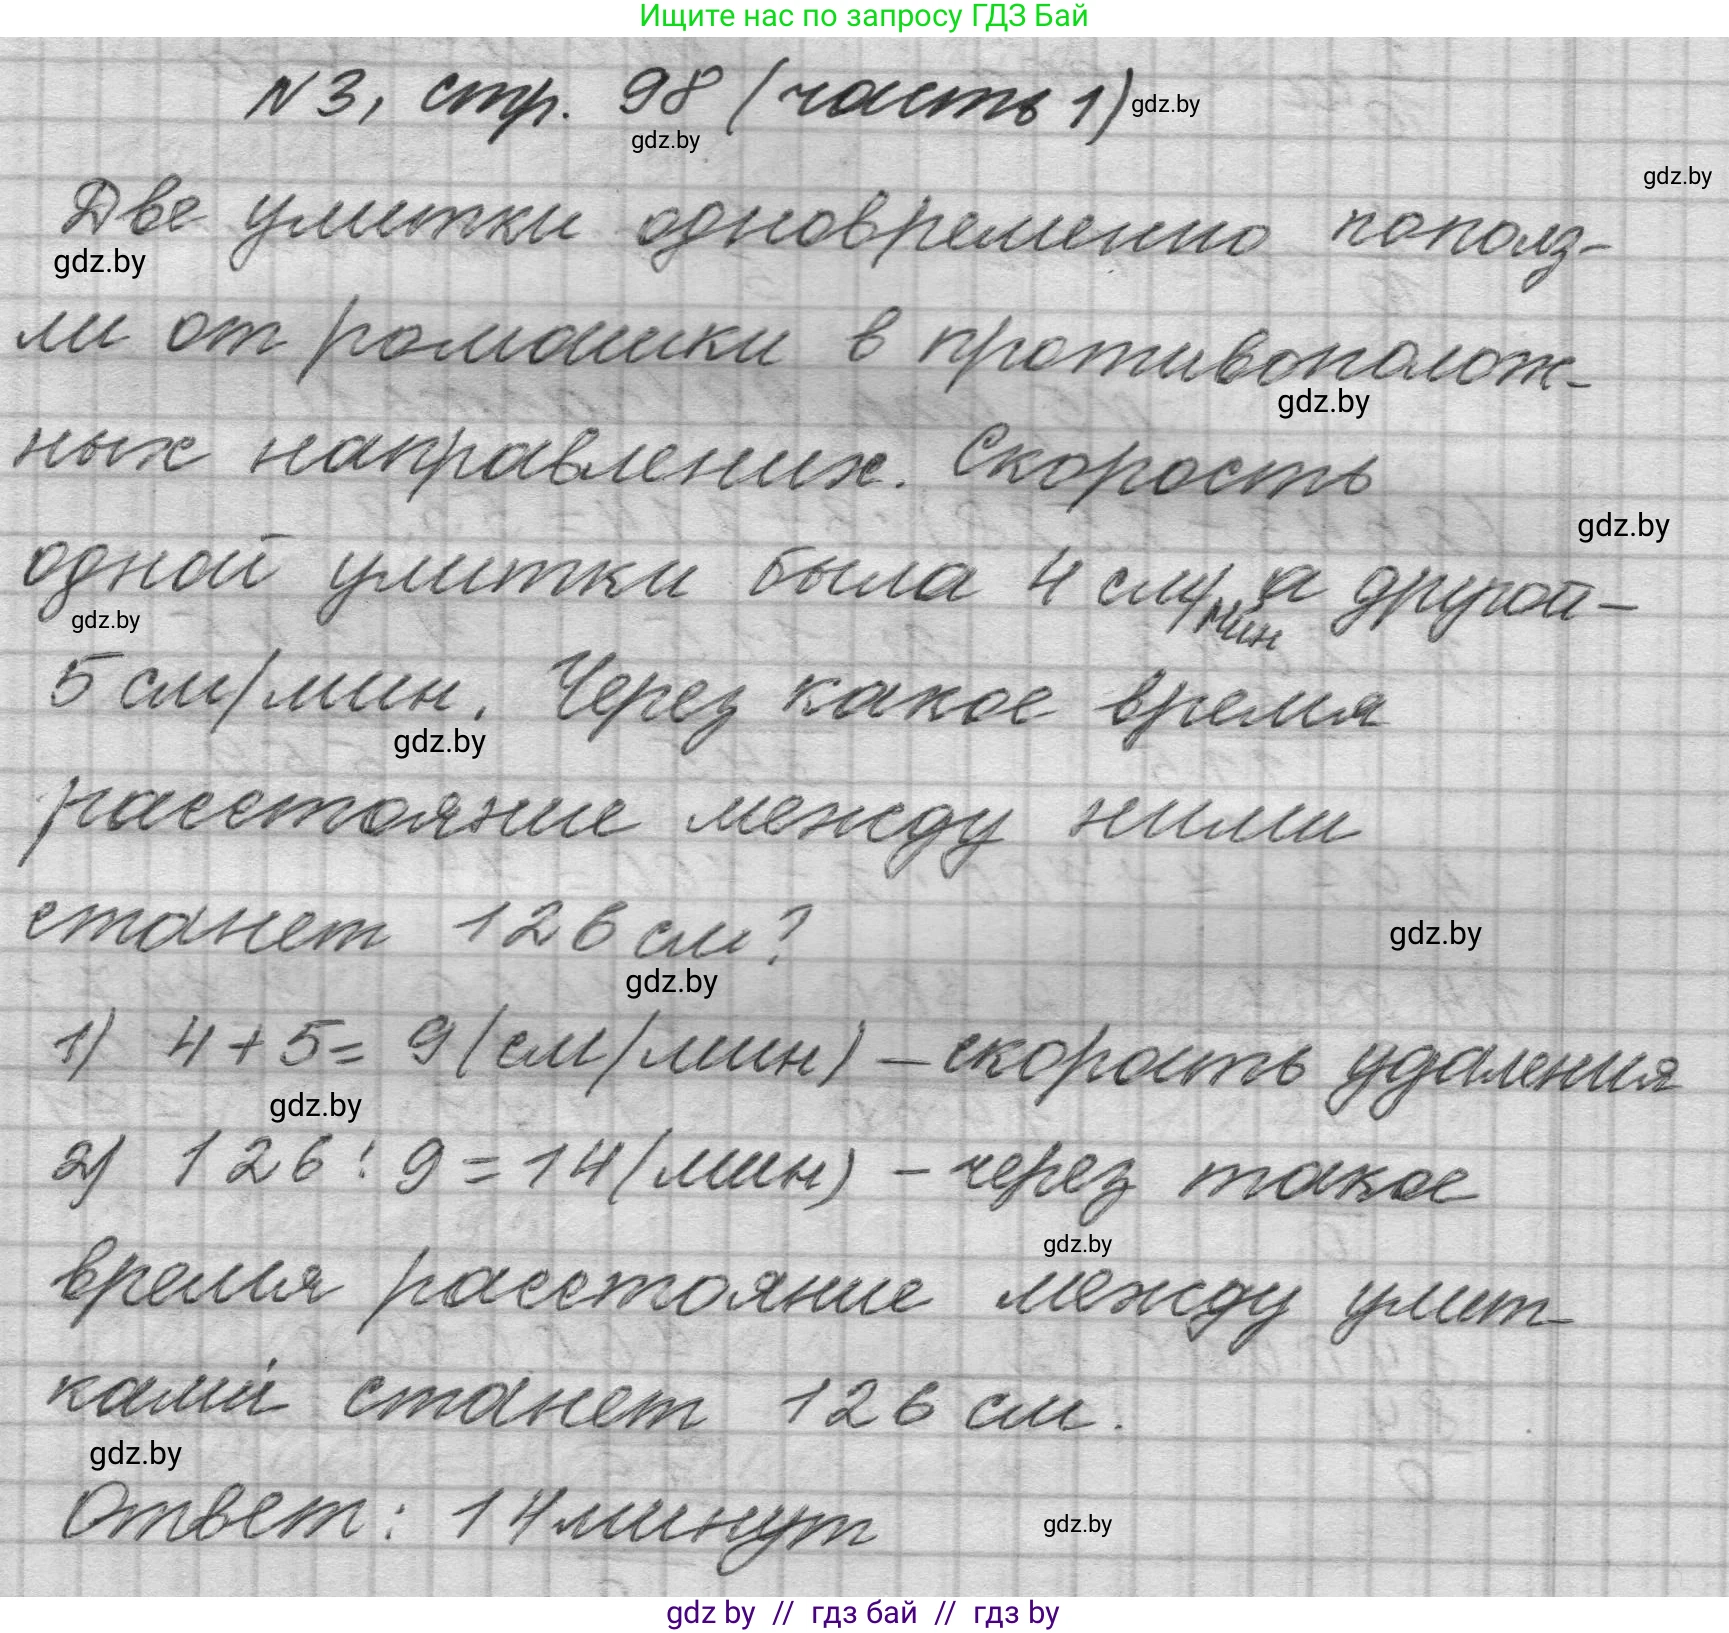 Ищите нас по запросу ГДЗ Бай
N3, стр. 98 (часть 1) gdz.by
gdz.by
gdz.by
Две улитки одновременно пополз-
gdz.by
ли от ромашки в противополож-
gdz.by
ных направлених. Скорость
gdz.by
одной улитки была 4 см/мин, а другой-
gdz.by
5 см/мин. Через какое время
gdz.by
расстояние между ними
станет 126 см?
gdz.by
gdz.by
1) 4+5= 9 (см/мин) - скорость удаления
gdz.by
2) 126 : 9 = 14 (мин) - через такое
gdz.by
время расстояние между улит-
ками станет 126 см.
gdz.by
Ответ: 14 минут
gdz.by
gdz by // гдз бай // гдз by